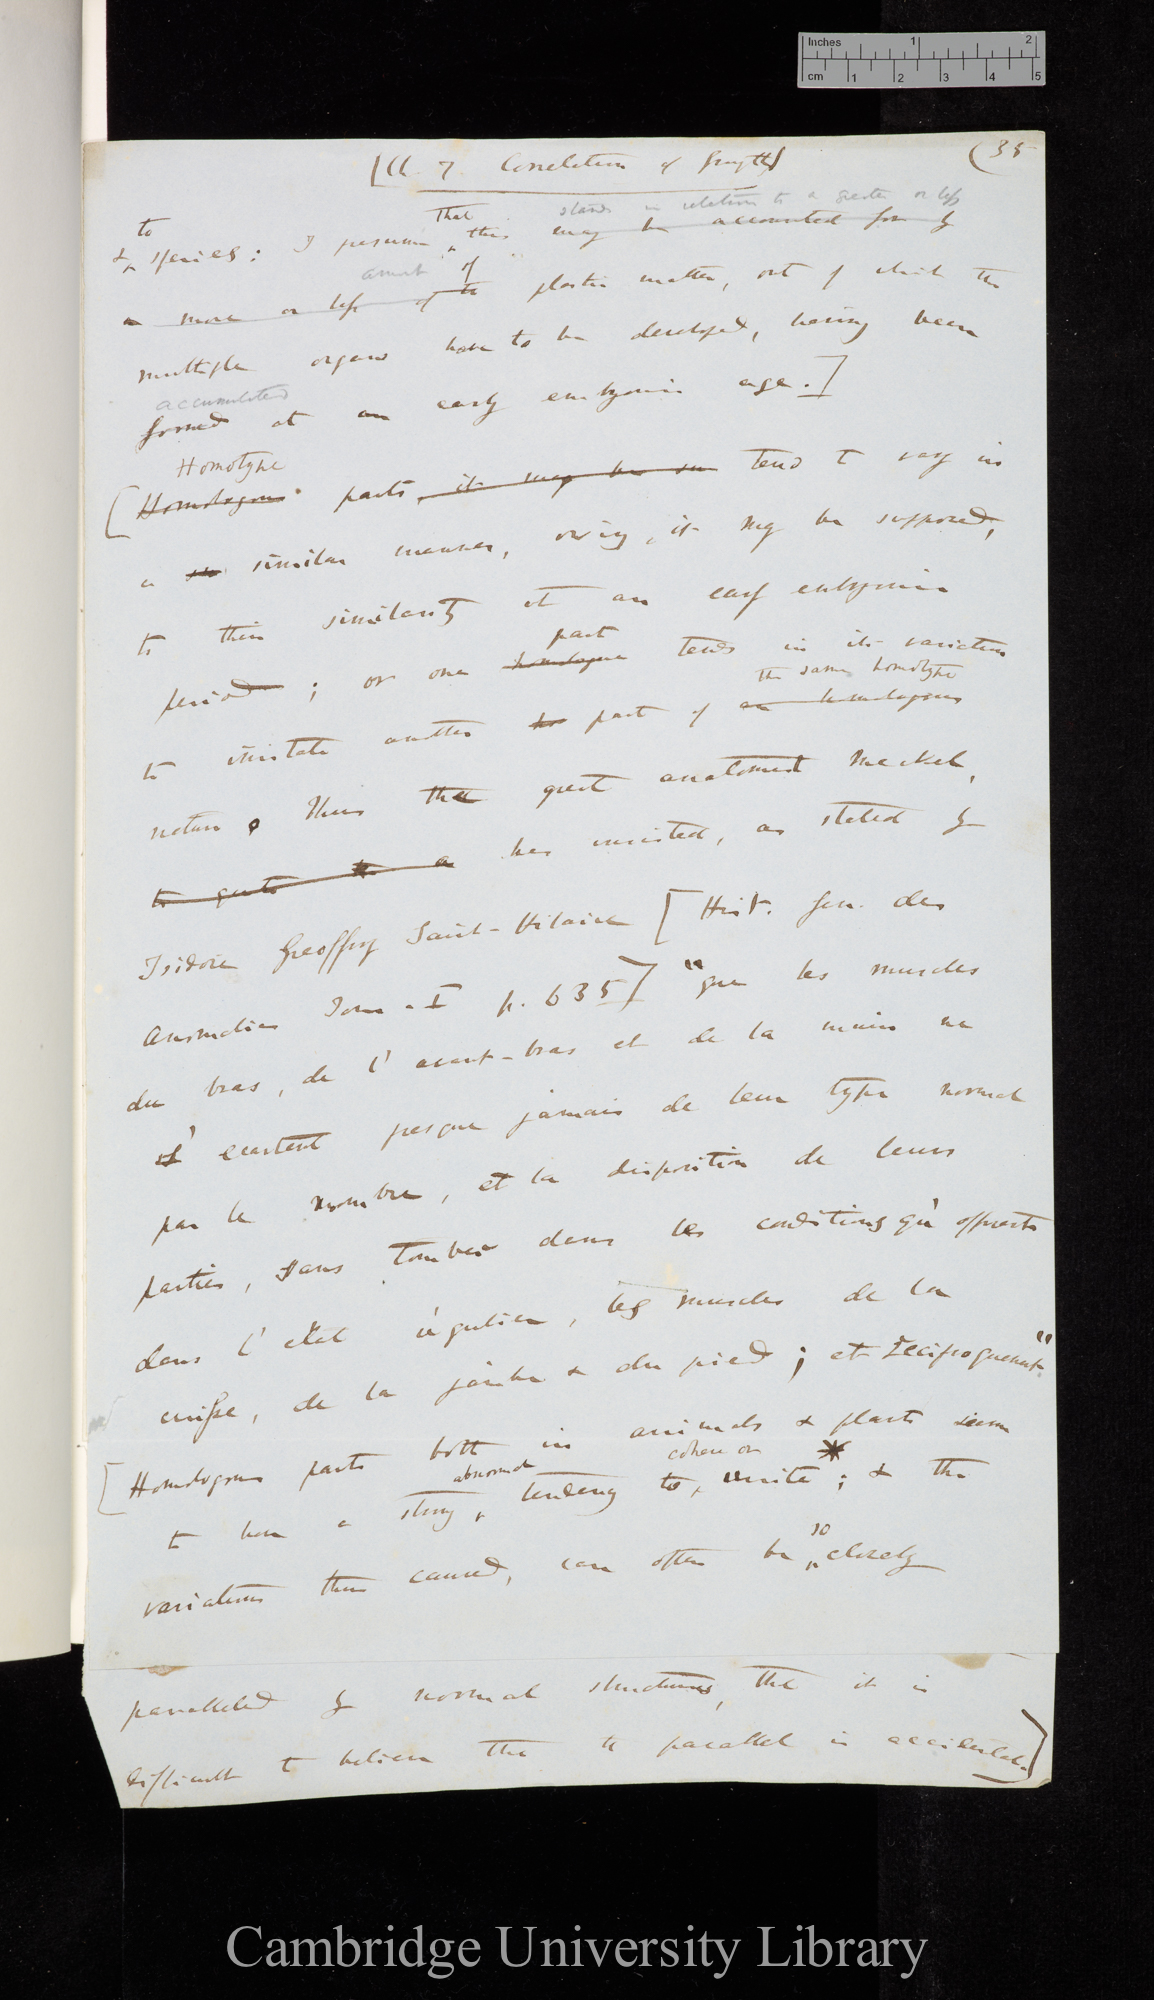 Inches 1 2
cm 1 2 3 4 5
[Ch. 7. Correlation of Growth]
(35
to that stands in relation to a greater or less
& species: I presume this may be accounted for by
amount of
a more or less of the plastic matter, out of which the
multiple organs have to be developed, having been
accumulated
formed at an early embryonic age.]
Homotype
[Homologous parts, it may be tend to vary in
a similar manner, owing, it may be supposed,
to their similarity at an early embryonic
part
period; or one homologue tends in its variation
the same homotype
to imitate another part of an homologous
nature. Thus the great anatomist Meckel,
to quote has insisted, as stated by
Isidore Geoffroy Saint-Hilaire [Hist. Gen. des
Anomalies Tom. I p. 635] "que les muscles
du bras, de l'avant-bras et de la main ne
s'ecartent presque jamais de leur type normal
par le nombre, et la disposition de leurs
parties, sans tomber dans les conditions qu'offrent
dans l'etat regulier, les muscles de la
cuisse, de la jambe & du pied; et reciproquement."
[Homologous parts both in animals & plants seem
abnormal cohere or
to have a strong tendency to unite *; & the
so
variations thus caused, can often be closely
paralleled by normal structures, that it is
difficult to believe that the parallel is accidental.]
Cambridge University Library